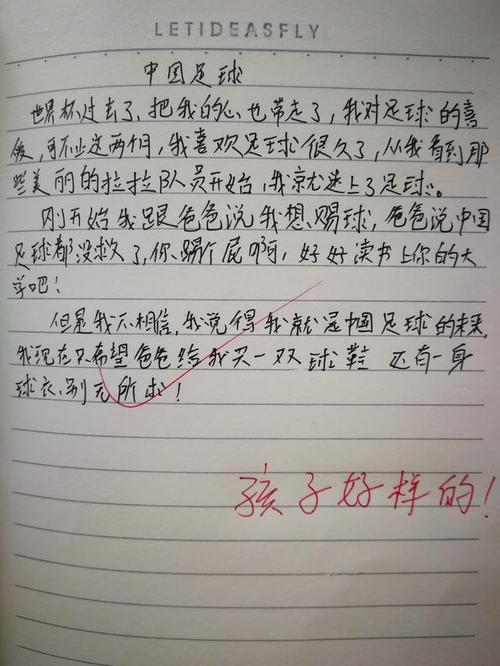 LETIDEASFLY
中国足球
世界杯过去了,把我的心也带走了,我对足球的喜
爱,可不止这两个月,我喜欢足球很久了,从我看到那
些美丽的拉拉队员开始,我就迷上了足球。
刚开始我跟爸爸说我想踢球,爸爸说中国
足球都没救了,你踢个屁啊,好好读书上你的大
学吧!
但是我不相信,我觉得我就是中国足球的未来,
我现在只希望爸爸给我买一双球鞋 还有一身
球衣、别无所求!
孩子好样的!